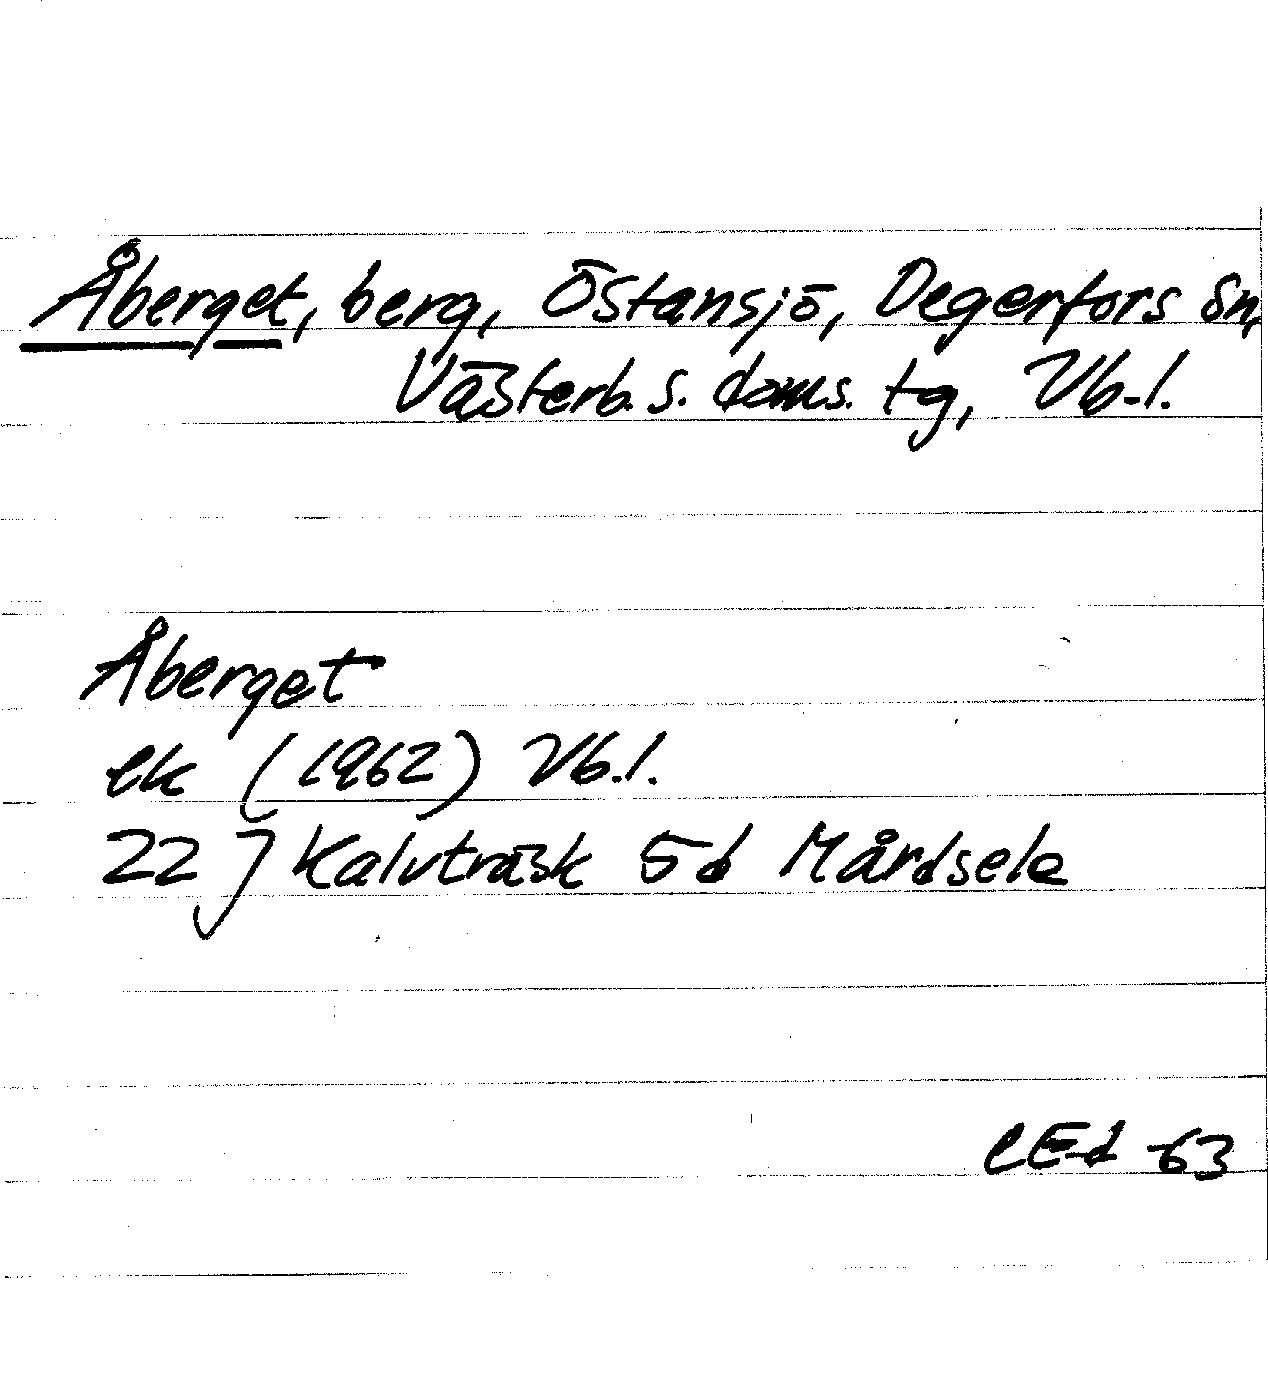 Åberget, berg, Östansjö, Degerfors Sn,
Västerb. s. doms. tg, Vb.l.
Åberget
ek (1962) Vb.l.
22 J Kalvträsk 5d Mårdsele
CEd -63